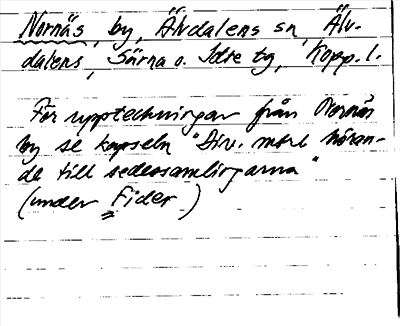 Nornäs, by, Älvdalens sn, Älv-
dalens, Särna o. Idre tg, Kopp. l.
För uppteckningar från Nornäs
by se kapseln "Div. mtrl höran-
de till sedessamlingarna"
(under Fider)